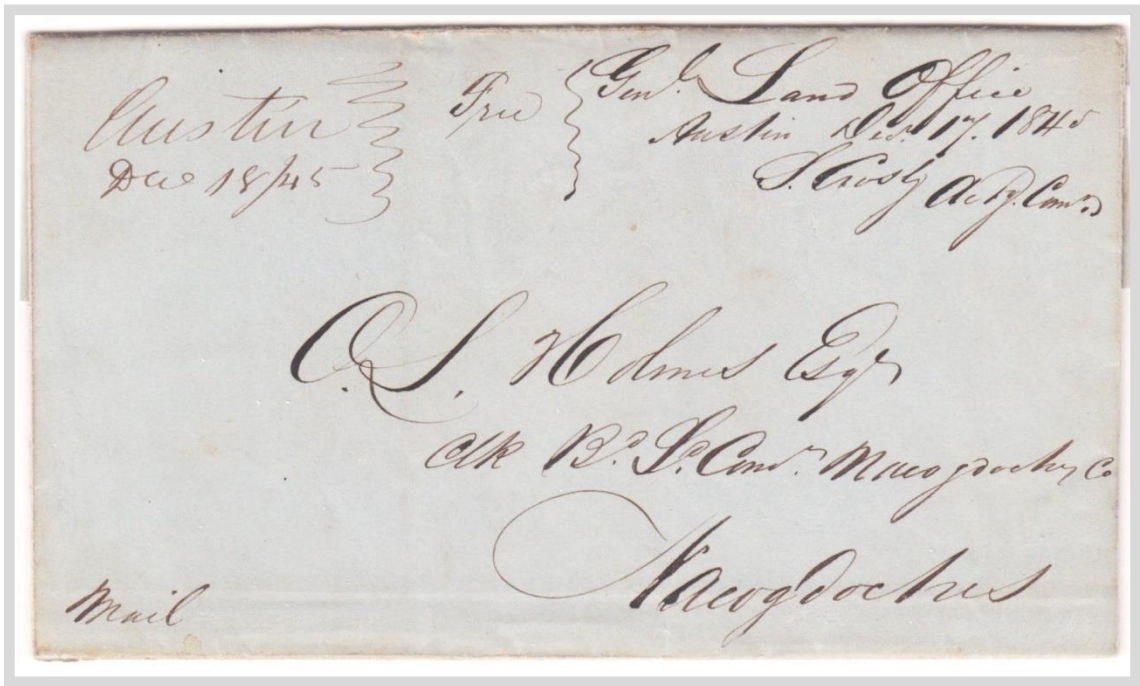 Austin
Dec 18/45
Free
Genl. Land Office
Austin Dec. 17. 1845
S. Crosby Actg. Comr.
O. L. Holmes Esqr
clk Bd. Ld. Comr. Nacogdoches Co
Nacogdoches
Mail